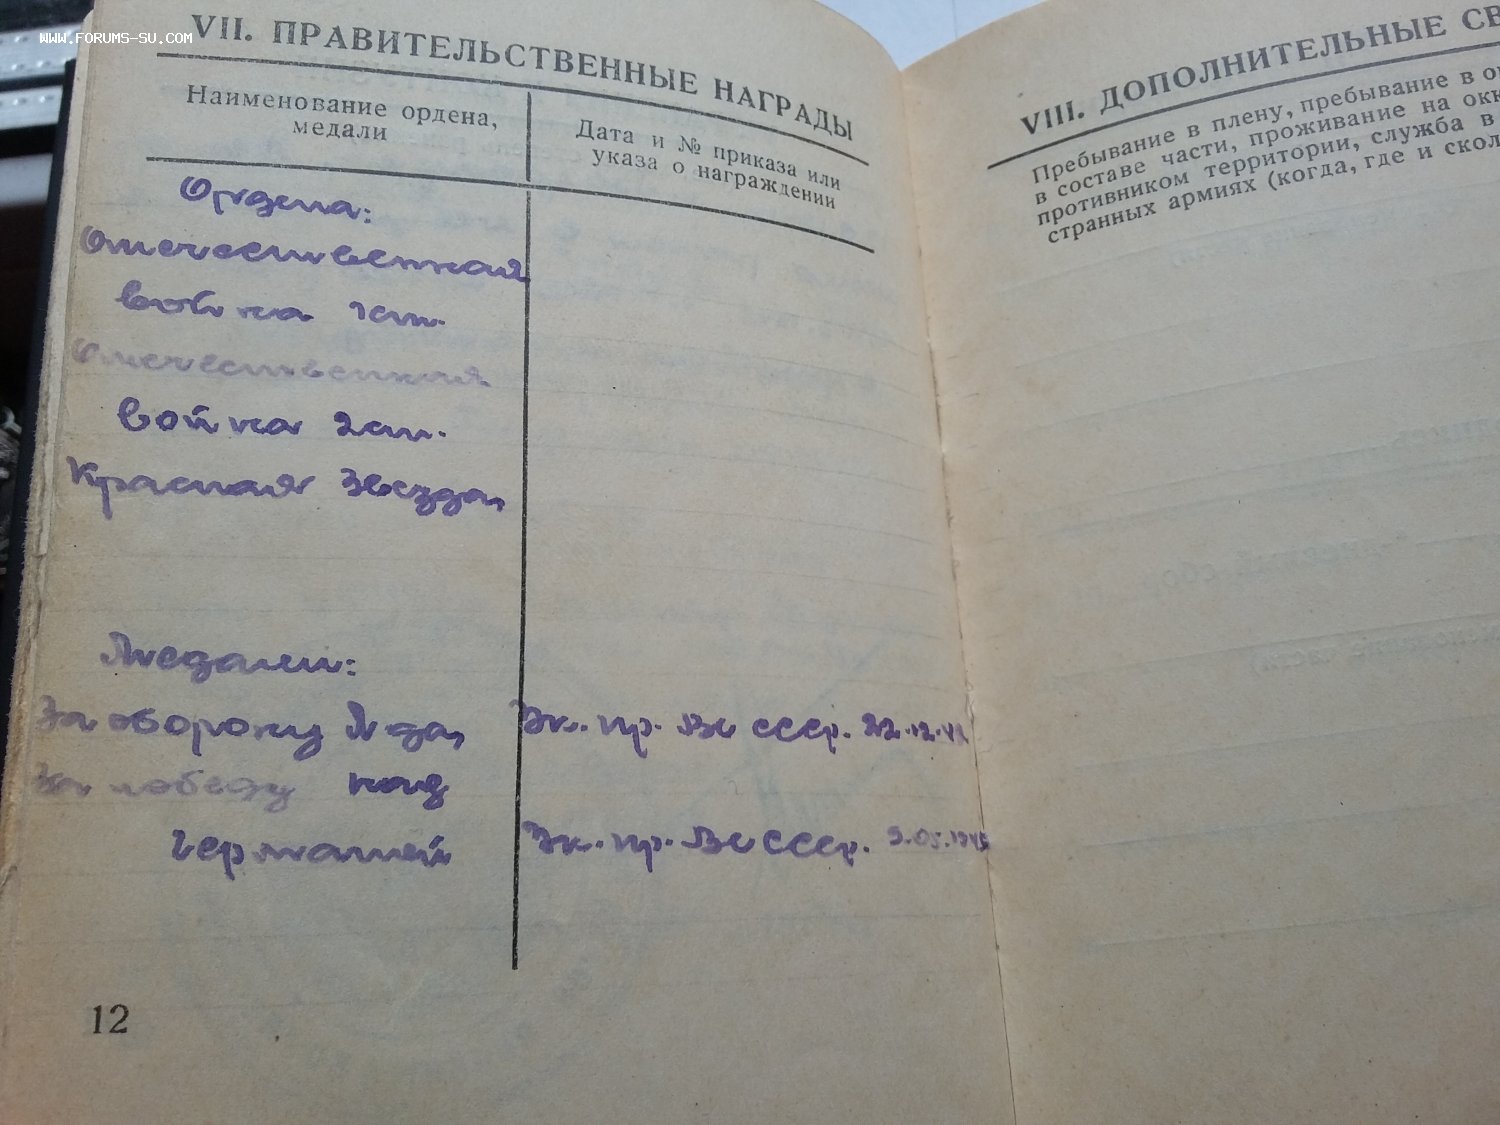 WWW.FORUMS-SU.COM
VII. ПРАВИТЕЛЬСТВЕННЫЕ НАГРАДЫ
Наименование ордена,
медали
Дата и № приказа или
указа о награждении
Ордена:
Отечественная
война 1 ст.
Отечественная
война 2 ст.
Красная Звезда,
Медали:
За оборону Л-да, Ук. пр. ВС СССР. 22.12.42
За победу над
Германией Ук. пр. ВС СССР. 9.05.1945
12
VIII. ДОПОЛНИТЕЛЬНЫЕ СВ
Пребывание в плену, пребывание в ок
в составе части, проживание на окк
противником территории, служба в
странных армиях (когда, где и скол